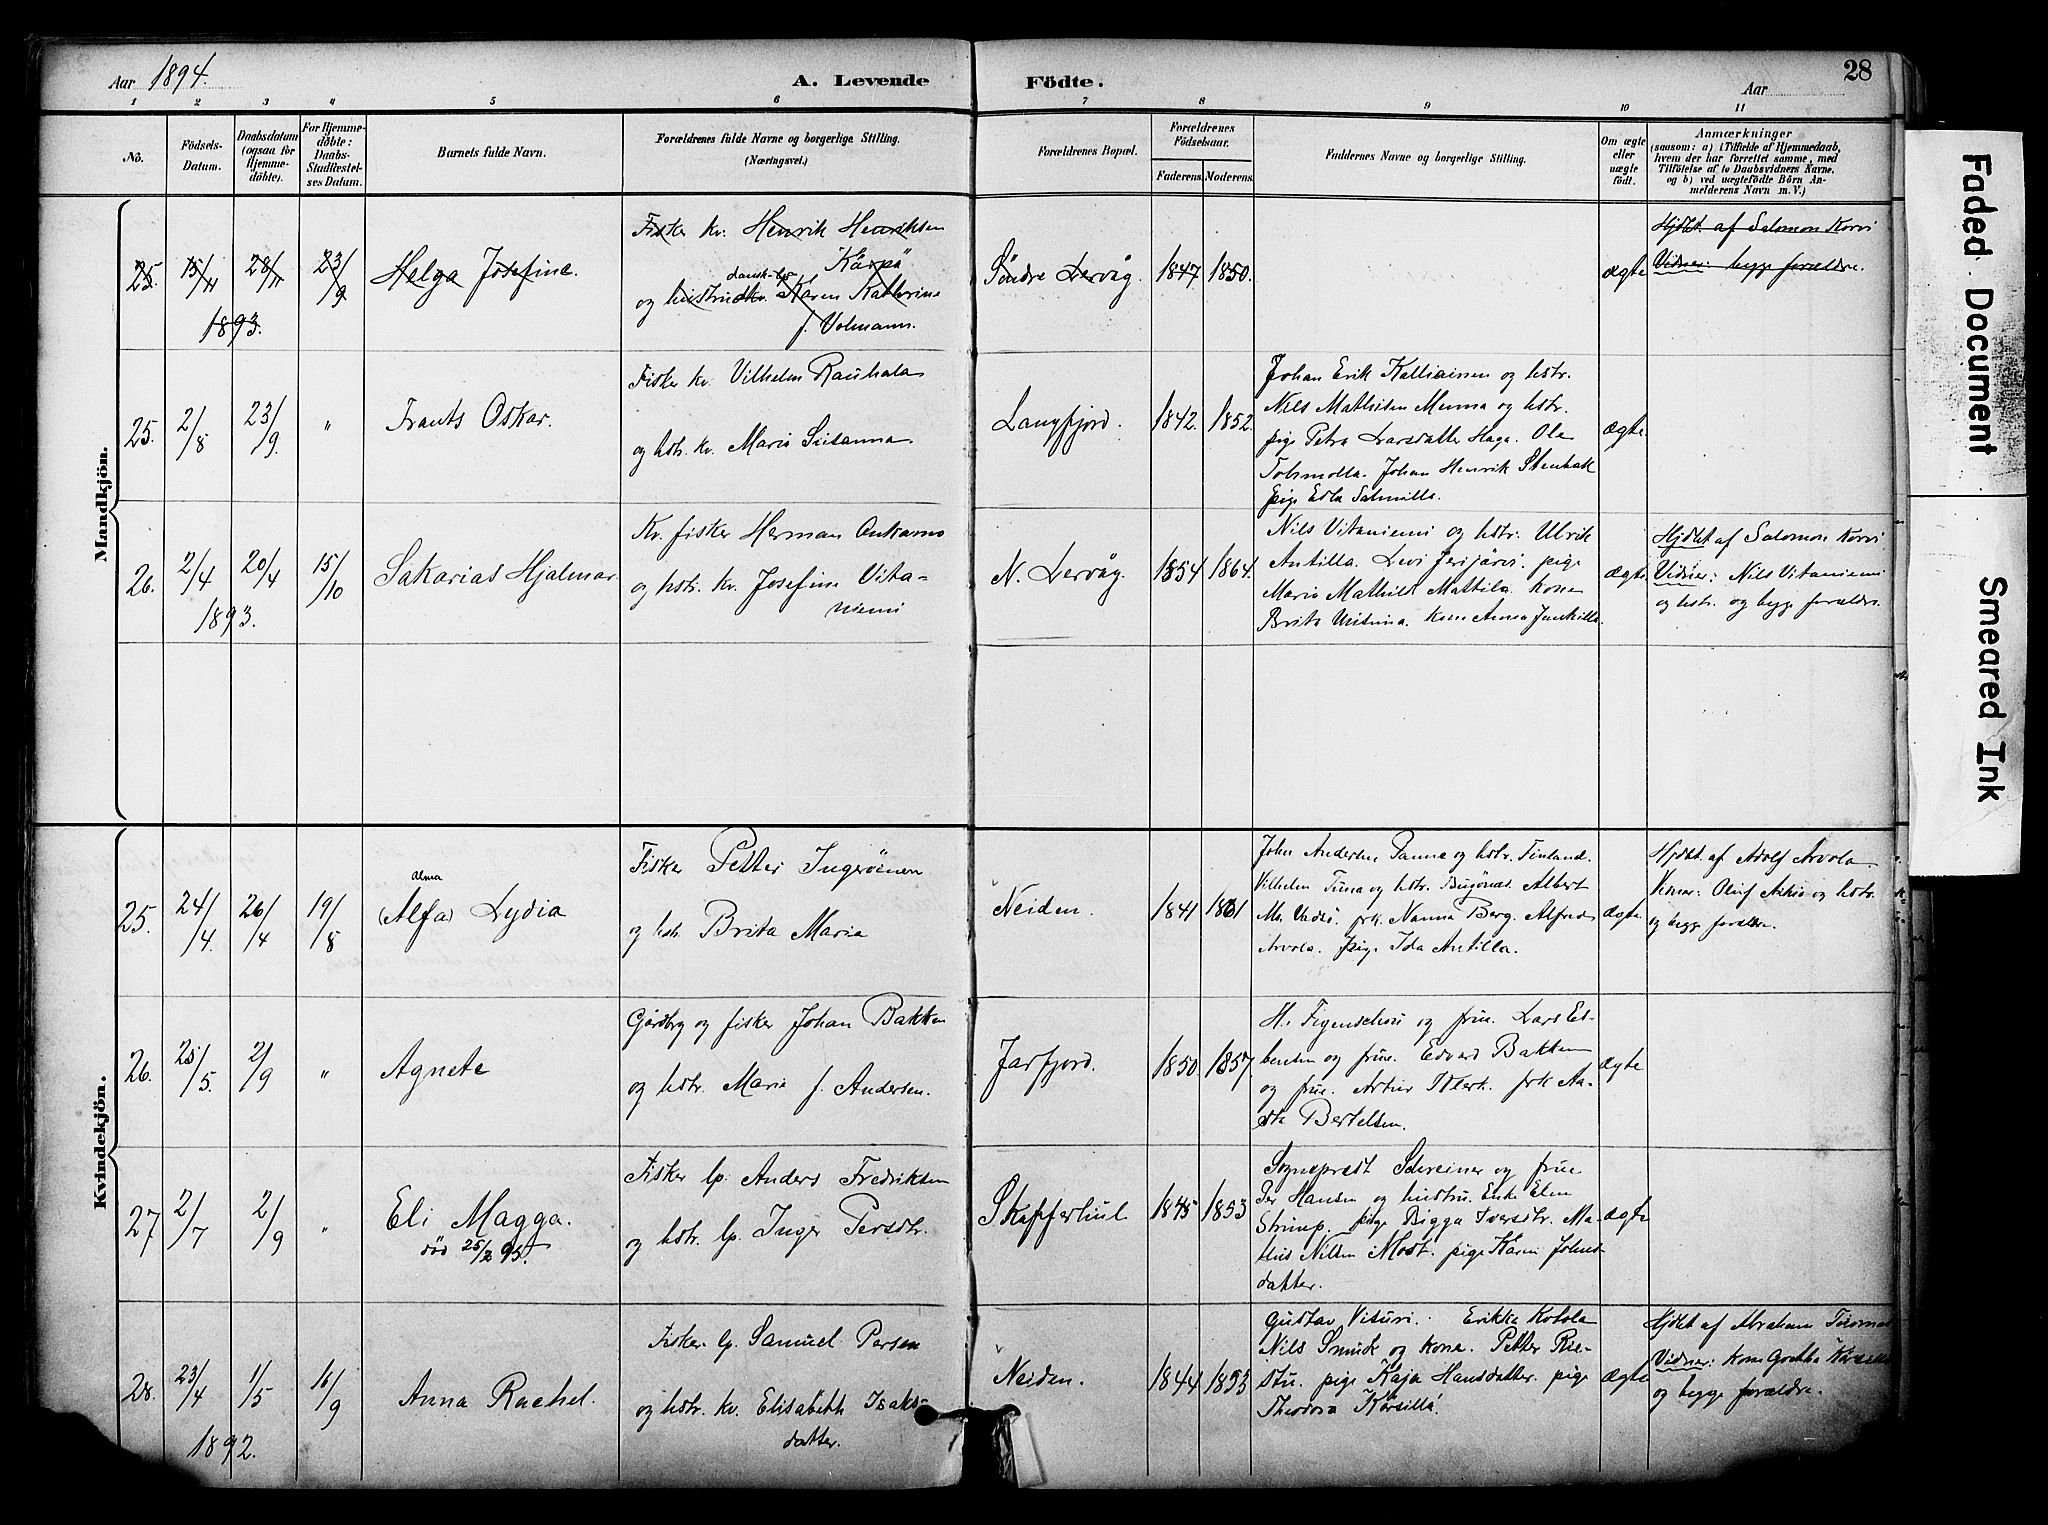 Aar 1894.
A. Levende Födte.
Aar
28
1 2 3 4 5 6 7 8 9 10 11
No.
Födsels-Datum.
Daabsdatum (ogsaa for Hjemme-döbte).
For Hjemme-döbte: Daabs-Stadfæstel-ses Datum.
Barnets fulde Navn.
Forældrenes fulde Navne og borgerlige Stilling. (Næringsvei.)
Forældrenes Bopæl.
Forældrenes Födselsaar.
Faderens. Moderens.
Faddernes Navne og borgerlige Stilling.
Om ægte eller uægte födt.
Anmærkninger
(saasom: a) i Tilfælde af Hjemmedaab, hvem der har forrettet samme, med Tilföielse af to Daabsvidners Navne. og b) ved uægtefödte Börn An-melderens Navn m. V.)
Mandkjön.
25. 15/11 28/11 23/9
1893.
Helga Josefine.
Fisker kv. Henrik Henriksen
"Kärpä"
og hustru Karen Kathrine
f. Volmann.
Söndre Lervåg. 1847 1850.
ægte
Hjdbt. af Salomon Korvi
Vidner: begge forældre.
25. 2/8 23/9 "
Frants Oskar.
Fisker kv. Vilhelm Rauhala
og hstr. kv. Maria Susanna
Langfjord. 1842. 1852.
Johan Erik Kalliainen og hstr.
Nils Mathisen Menna og hstr.
pige Petra Larsdatter Haga. Ola
Tolsmolla. Johan Henrik Stenbak
pige Edla Salmilla.
ægte.
26. 2/4 20/4 15/10
1893.
Sakarias Hjalmar.
Kv. fisker Herman Onkamo
og hstr. kv. Josefine Vita-
niemi
N. Lervåg. 1854 1864.
Nils Vitaniemi og hstr. Ulrik
Antilla. Levi Jerijärvi. pige
Maria Mathild Mattila. kone
Brita. kone Anna
ægte
Hjdbt af Salomon Korvi
Vidner: Nils Vitaniemi
og hstr. og begge forældre.
Kvindekjön.
25. 24/4. 26/4 19/8
Alma
(Alfa) Lydia
Fisker Petter Ingeröinen
og hstr. Brita Maria
Neiden. 1841 1861
John Andersen Panna og hstr. Finland.
Vilhelm Tuna og hstr. Bugönes. Albert
frk. Nanna Berg. Alfred
Arvola. pige Ida Antilla.
ægte
Hjdbt. af Adolf Arvola
Vidner: Oluf og hstr.
og begge forældre.
26. 25/5. 2/9 "
Agnete
Gårdbrg og fisker Johan Bakken
og hstr. Maria f. Andersen.
Jarfjord. 1850 1857
H. Figenschou og frue. Lars Es-
bensen og frue. Edvard Bakken
og frue. Artur. frk Aa-
sta Bertelsen.
ægte
27. 2/7 2/9 "
Eli Magga.
död 25/2 95.
Fisker lp. Anders Fredriksen
og hstr. lp. Inger Persdtr.
Skafferhul 1845 1853
Sogneprest Schreiner og frue
Per Hansen og hustru. Enke Elen
Strimp. pige Bigga Iversdtr. Ma-
this Nilsen Most. pige Karen Johns
datter.
ægte
28. 23/4 1/5 16/9
1892.
Anna Rachel.
Fisker lp. Samuel Persen
og hstr. kv. Elisabeth Isaks-
datter.
Neiden. 1844 1853
Gustav Visuri. Erikka Kotola
Nils Smuk og kone. Petter Rie-
sto. pige Kaja Hansdatter. pige
Theodora Karsilla.
ægte
Hjdbt af Abraham Tuomas
Vidner: kone Gretha Karsilla
og begge forældre.
Faded Document
Smeared Ink